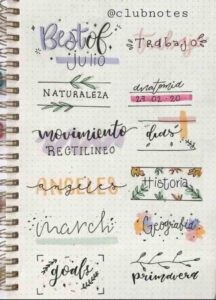 @clubnotes
Best of
julio
Trabajo
NATURALEZA
anatomia
29·01·20
movimiento
RECTILINEO
dias
ANGELES
angeles
Historia
march
Geografia
goals
primavera